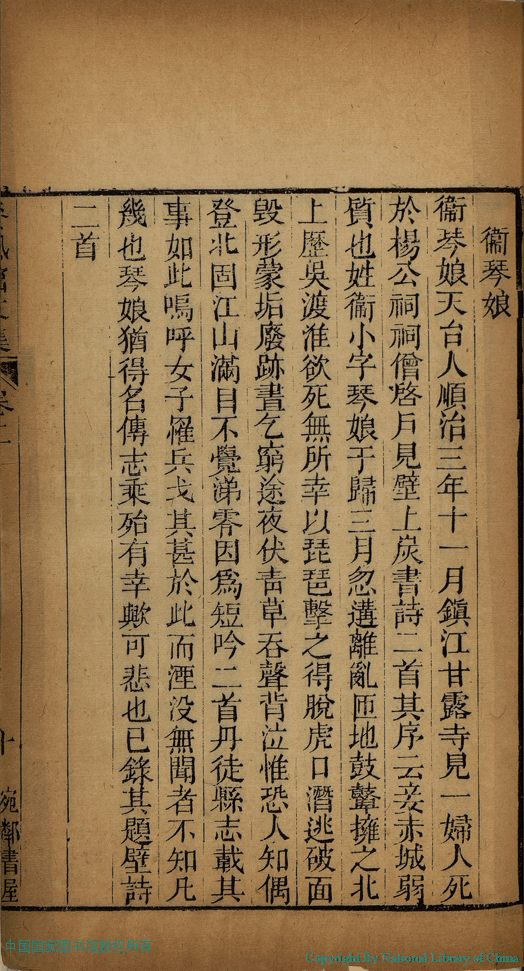 衞琴娘
衞琴娘天台人順治三年十一月鎮江甘露寺見一婦人死
於楊公祠祠僧啓戶見壁上炭書詩二首其序云妾赤城弱
質也姓衞小字琴娘于歸三月忽遘離亂匝地鼓鼙擁之北
上歷吳渡淮欲死無所幸以琵琶擊之得脫虎口潛逃破面
毀形蒙垢廢跡晝乞窮途夜伏靑草吞聲背泣惟恐人知偶
登北固江山滿目不覺涕零因爲短吟二首丹徒縣志載其
事如此嗚呼女子罹兵戈其甚於此而湮没無聞者不知凡
幾也琴娘猶得名傳志乘殆有幸歟可悲也已錄其題壁詩
二首
卷十二
十
宛鄰書屋
中国国家图书馆
Copyright by National Library of China